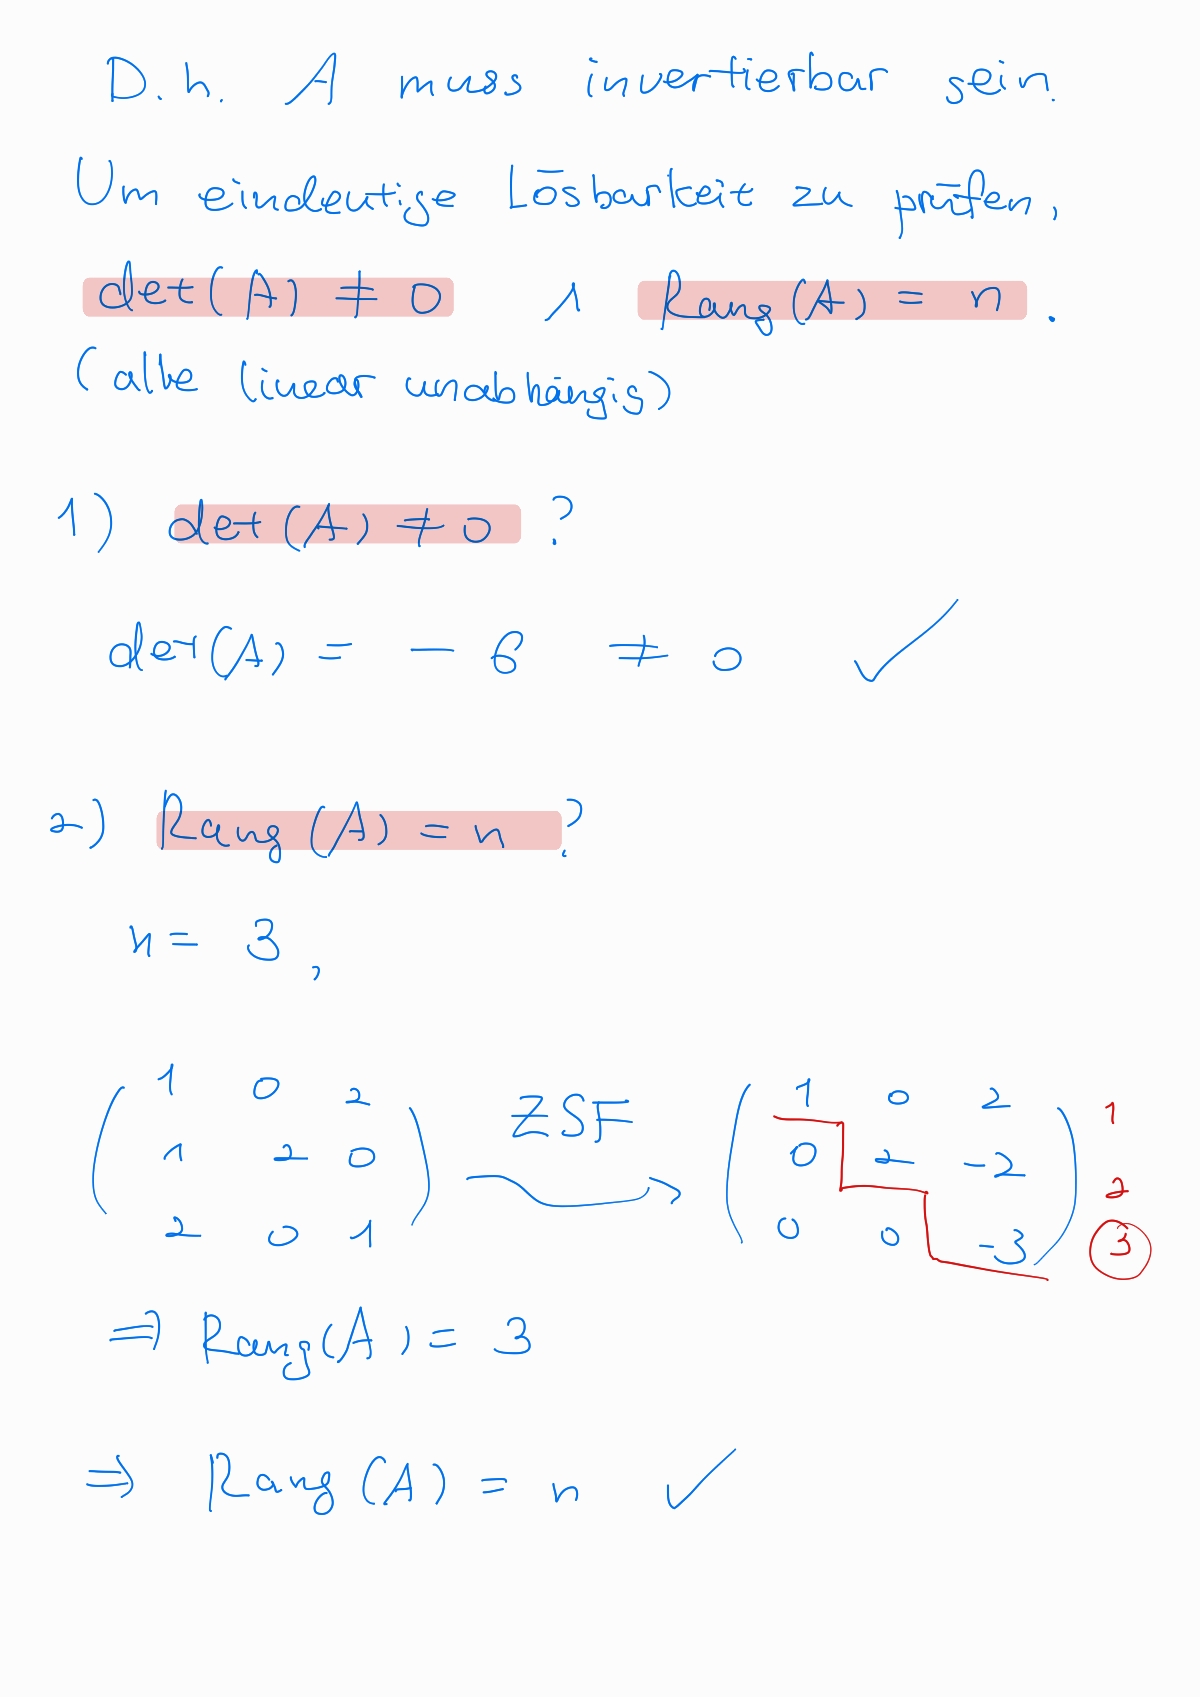 D.h. A muss invertierbar sein.
Um eindeutige Lösbarkeit zu prüfen,
det(A) ≠ 0 ∧ Rang(A) = n.
(alle linear unabhängig)
1) det(A) ≠ 0 ?
det(A) = - 6 ≠ 0 ✓
2) Rang(A) = n ?
n = 3,
( 1 0 2 ) ( 1 0 2 ) 1
( 1 2 0 ) ZSF → ( 0 2 -2 ) 2
( 2 0 1 ) ( 0 0 -3 ) 3
⇒ Rang(A) = 3
⇒ Rang(A) = n ✓